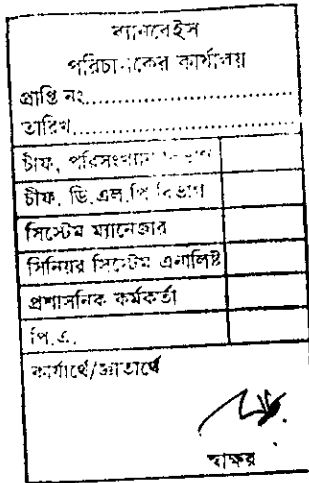 ব্যানবেইস
পরিচালকের কার্যালয়
প্রাপ্তি নং..............................
তারিখ..............................
চীফ, পরিসংখ্যান বিভাগ
চীফ, ডি.এল.পি বিভাগ
সিস্টেম ম্যানেজার
সিনিয়র সিস্টেম এনালিষ্ট
প্রশাসনিক কর্মকর্তা
পি.এ.
কার্যার্থে/জ্ঞাতার্থে
স্বাক্ষর